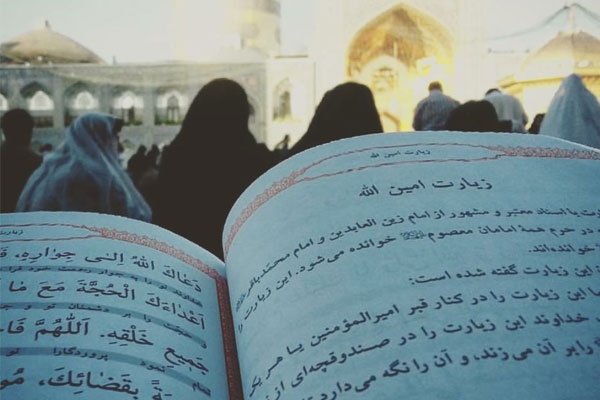 زیارت امین الله
زیارت امین الله
با اسناد معتبر و مشهور از امام زین العابدین و امام محمدباقر
در حرم همهٔ امامان معصوم خوانده می‌شود. این زیارت را
خوانده‌اند.
این زیارت گفته شده است:
این زیارت را در کنار قبر امیرالمؤمنین یا هر یک
خداوند این زیارت را در صندوقچه‌ای از
را بر آن می‌زند، و آن را نگه می‌دارد
زیارت
دَعَاكَ اللهُ اِلىٰ جِوارِهِ،
اَعْدَاءَكَ الْحُجَّةَ مَعَ مَا
جَمیعِ خَلْقِهِ. اَللّٰهُمَّ
بِقَضَائِكَ،